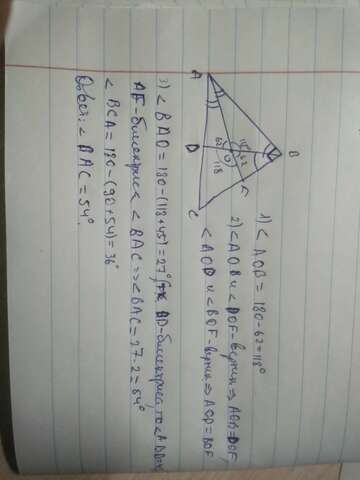 B
A
D
C
F
O
62
118
1) < AOB = 180-62=118°
2) < AOB и < DOF - вертик ⇒ AOB = DOF,
< AOD и < BOF - вертик ⇒ AOD = BOF
3) < BAO = 180-(118+45)=27° т.к BD-биссектриса, то
AF-биссектриса < BAC => < BAC = 27·2 = 54°
< BCA = 180-(90+54)=36°
Ответ: < BAC = 54°.